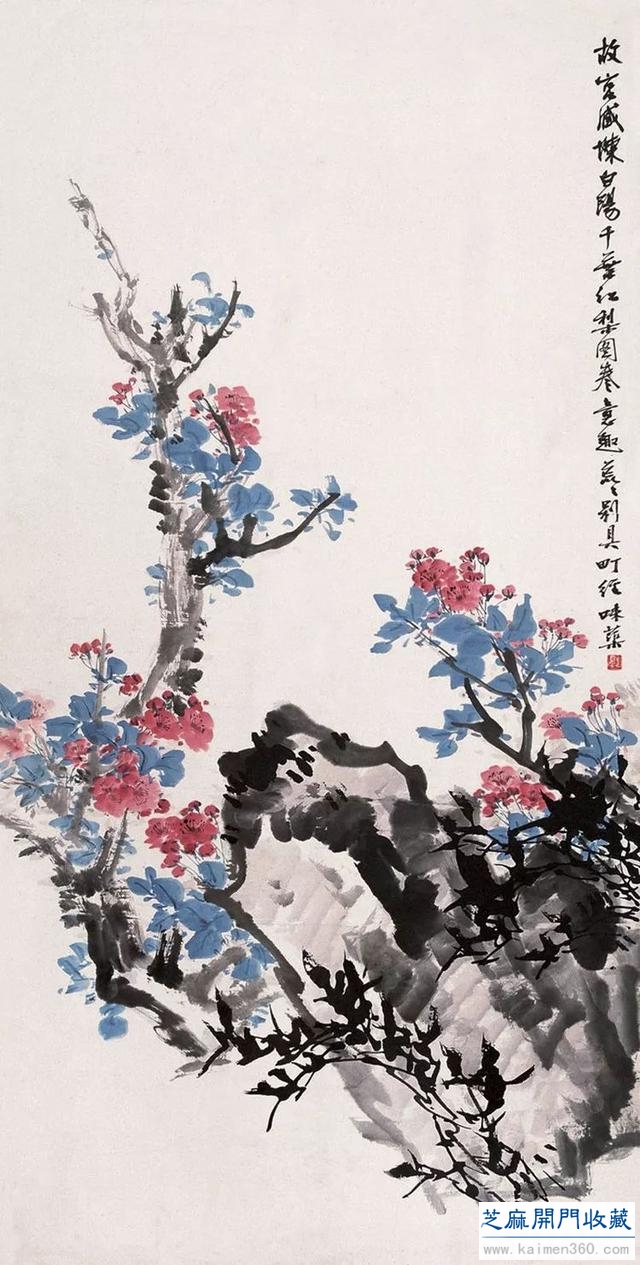 故宫藏陳白陽千葉红梨圖卷意趣荒〻别具町径味蕖
芝麻開門收藏
www.kaimen360.com